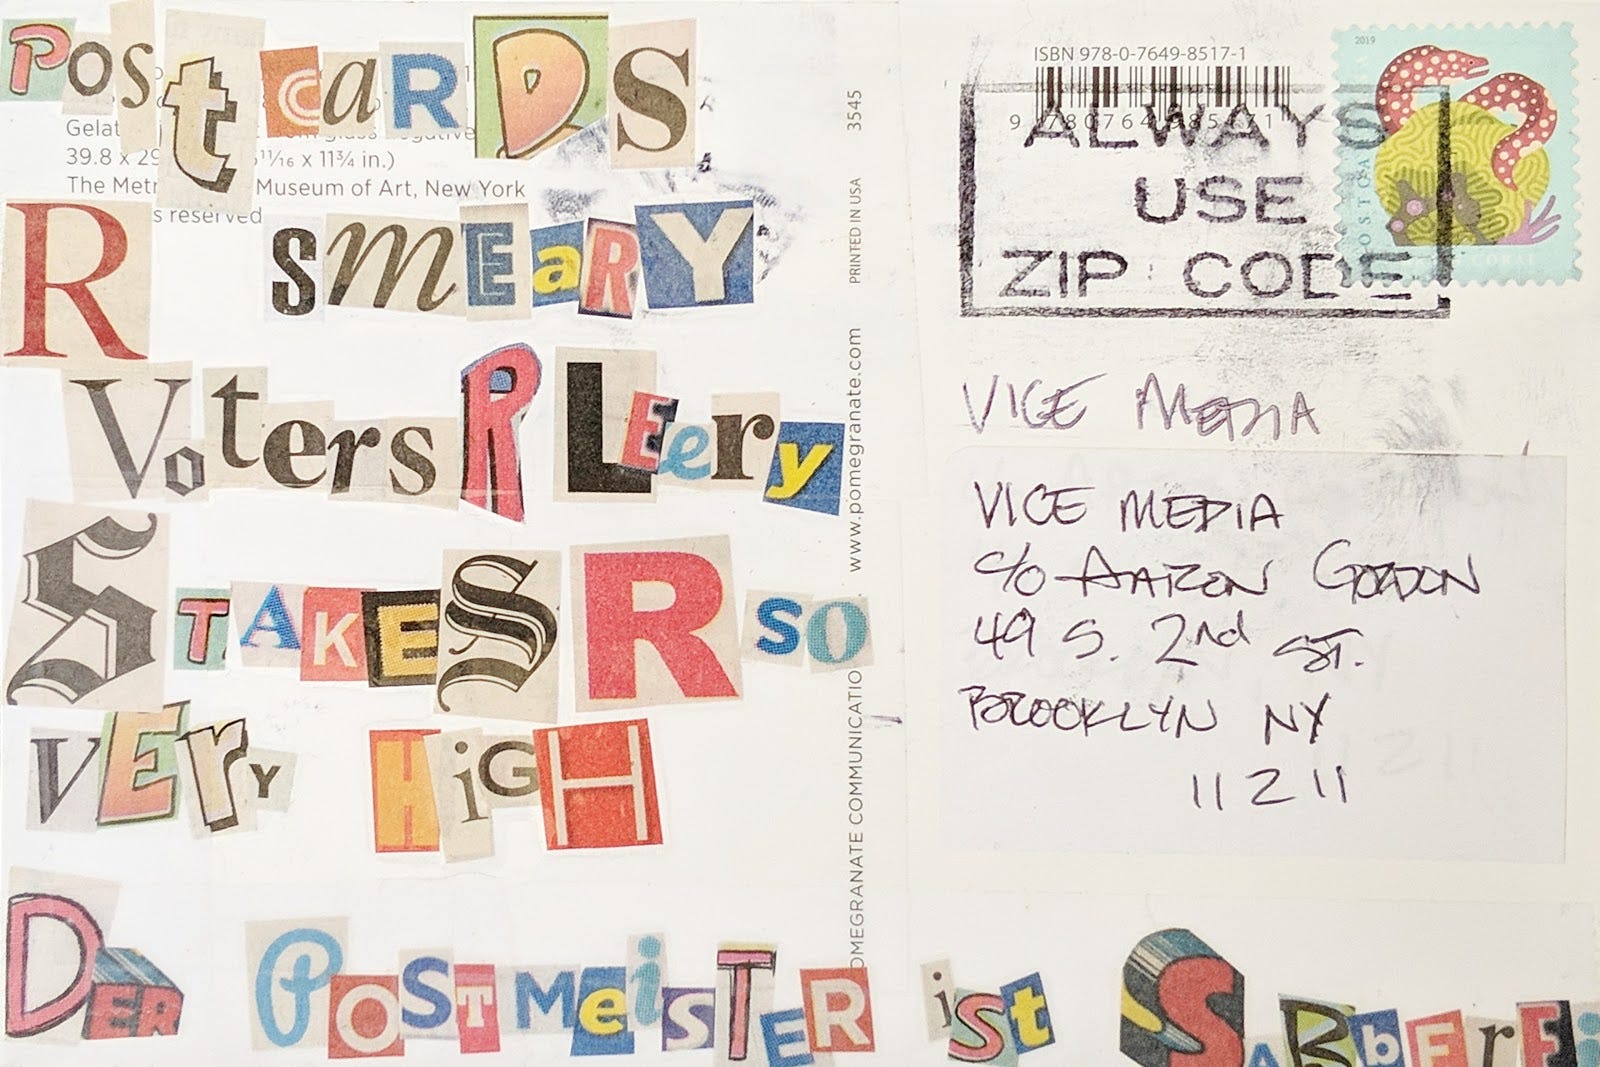 PostcARDS
R SmEaRY
Voters R LEery
STAKES R so
vEry HiGH
DER POSTMeiSTER iSt SABbErFEi
Gelat
39.8 x 29
11/16 x 11¾ in.)
The Metr Museum of Art, New York
s reserved
3545
PRINTED IN USA
www.pomegranate.com
OMEGRANATE COMMUNICATIO
ISBN 978-0-7649-8517-1
ALWAYS
USE
ZIP CODE
2019
CORAL
VICE MEDIA
VICE MEDIA
c/o AARON GORDON
49 S. 2nd ST.
BROOKLYN NY
11211